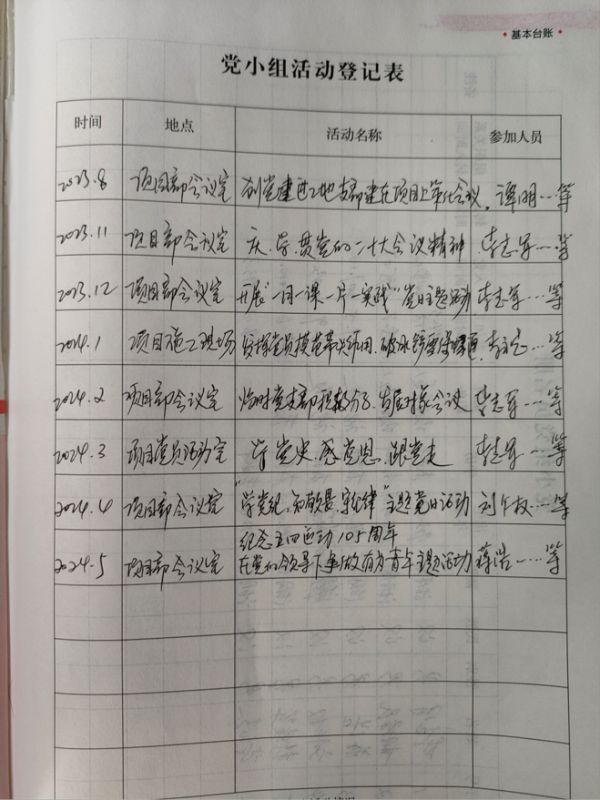 • 基本台账 •
党小组活动登记表
时间 地点 活动名称 参加人员
2023.8 项目部会议室 创党建进工地支部建在项目上 会议 谭明…等
2023.11 项目部会议室 庆、学、贯党的二十大会议精神 李志军…等
2023.12 项目部会议室 开展"一月一课一片一实践"党日主题活动 李志军…等
2024.1 项目施工现场 发挥党员模范带头作用、破冰铲雪保 通 李志…等
2024.2 项目部会议室 临时党支部积极分子、发展对象会议 李志军…等
2024.3 项目党员活动室 学党史、感党恩、跟党走 李志军…等
2024.4 项目部会议室 "学党纪、知敬畏、守纪律"主题党日活动 刘 …等
纪念五四运动105周年
2024.5 项目部会议室 在党的领导下争做有为青年主题活动 蒋浩…等